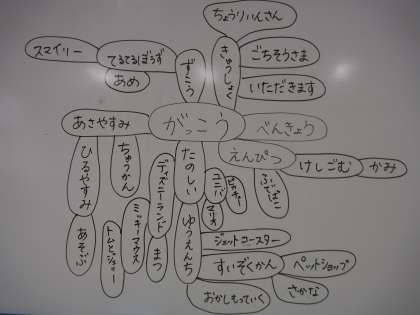 ちょうりいんさん
スマイリー
てるてるぼうず
ずこう
きゅうしょく
ごちそうさま
いただきます
あめ
あさやすみ
がっこう
べんきょう
ひるやすみ
ちゅうかん
ディズニーランド
たのしい
えんぴつ
けしごむ
かみ
ユニバ
ピカチュー
マリオ
ふでばこ
ミッキーマウス
ゆうえんち
あそぶ
トムとジェリー
まつ
ジェットコースター
すいぞくかん
ペットショップ
さかな
おかしもっていく